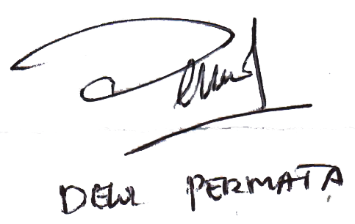 DEWI PERMATA